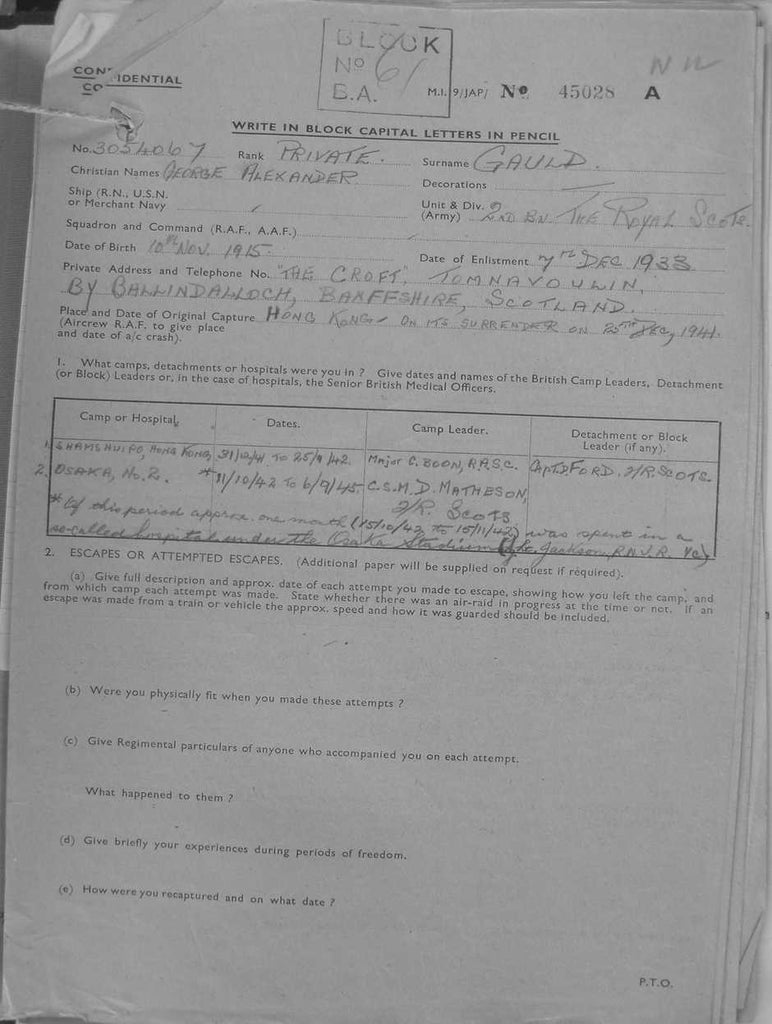 BLOCK
No 61
B.A.
NW
CONFIDENTIAL
CO
M.I. 9/JAP/ No 45028 A
WRITE IN BLOCK CAPITAL LETTERS IN PENCIL
No. 3054067 Rank PRIVATE. Surname GAULD.
Christian Names GEORGE ALEXANDER Decorations
Ship (R.N., U.S.N. or Merchant Navy Unit & Div. (Army) 2ND BN. THE ROYAL SCOTS.
Squadron and Command (R.A.F., A.A.F.)
Date of Birth 10TH NOV. 1915. Date of Enlistment 7TH DEC 1933
Private Address and Telephone No. "THE CROFT", TOMNAVOULIN,
BY BALLINDALLOCH, BANFFSHIRE, SCOTLAND.
Place and Date of Original Capture HONG KONG - ON ITS SURRENDER ON 25TH DEC, 1941.
(Aircrew R.A.F. to give place
and date of a/c crash).
1. What camps, detachments or hospitals were you in ? Give dates and names of the British Camp Leaders, Detachment
(or Block) Leaders or, in the case of hospitals, the Senior British Medical Officers.
Camp or Hospital. Dates. Camp Leader. Detachment or Block Leader (if any).
1. SHAMSHUIPO, HONG KONG, 31/12/41 TO 25/9/42. Major C. BOON, R.A.S.C. CAPT. D FORD. 2/R. SCOTS.
2. OSAKA, No. 2. * 11/10/42 TO 6/9/45. C.S.M. D. MATHESON,
2/R. SCOTS
* Of this period approx. one month (15/10/42 to 15/11/42) was spent in a
so-called hospital under the Osaka Stadium (Jackson, R.N.V.R.
2. ESCAPES OR ATTEMPTED ESCAPES. (Additional paper will be supplied on request if required).
(a) Give full description and approx. date of each attempt you made to escape, showing how you left the camp, and
from which camp each attempt was made. State whether there was an air-raid in progress at the time or not. If an
escape was made from a train or vehicle the approx. speed and how it was guarded should be included.
(b) Were you physically fit when you made these attempts ?
(c) Give Regimental particulars of anyone who accompanied you on each attempt.
What happened to them ?
(d) Give briefly your experiences during periods of freedom.
(e) How were you recaptured and on what date ?
P.T.O.